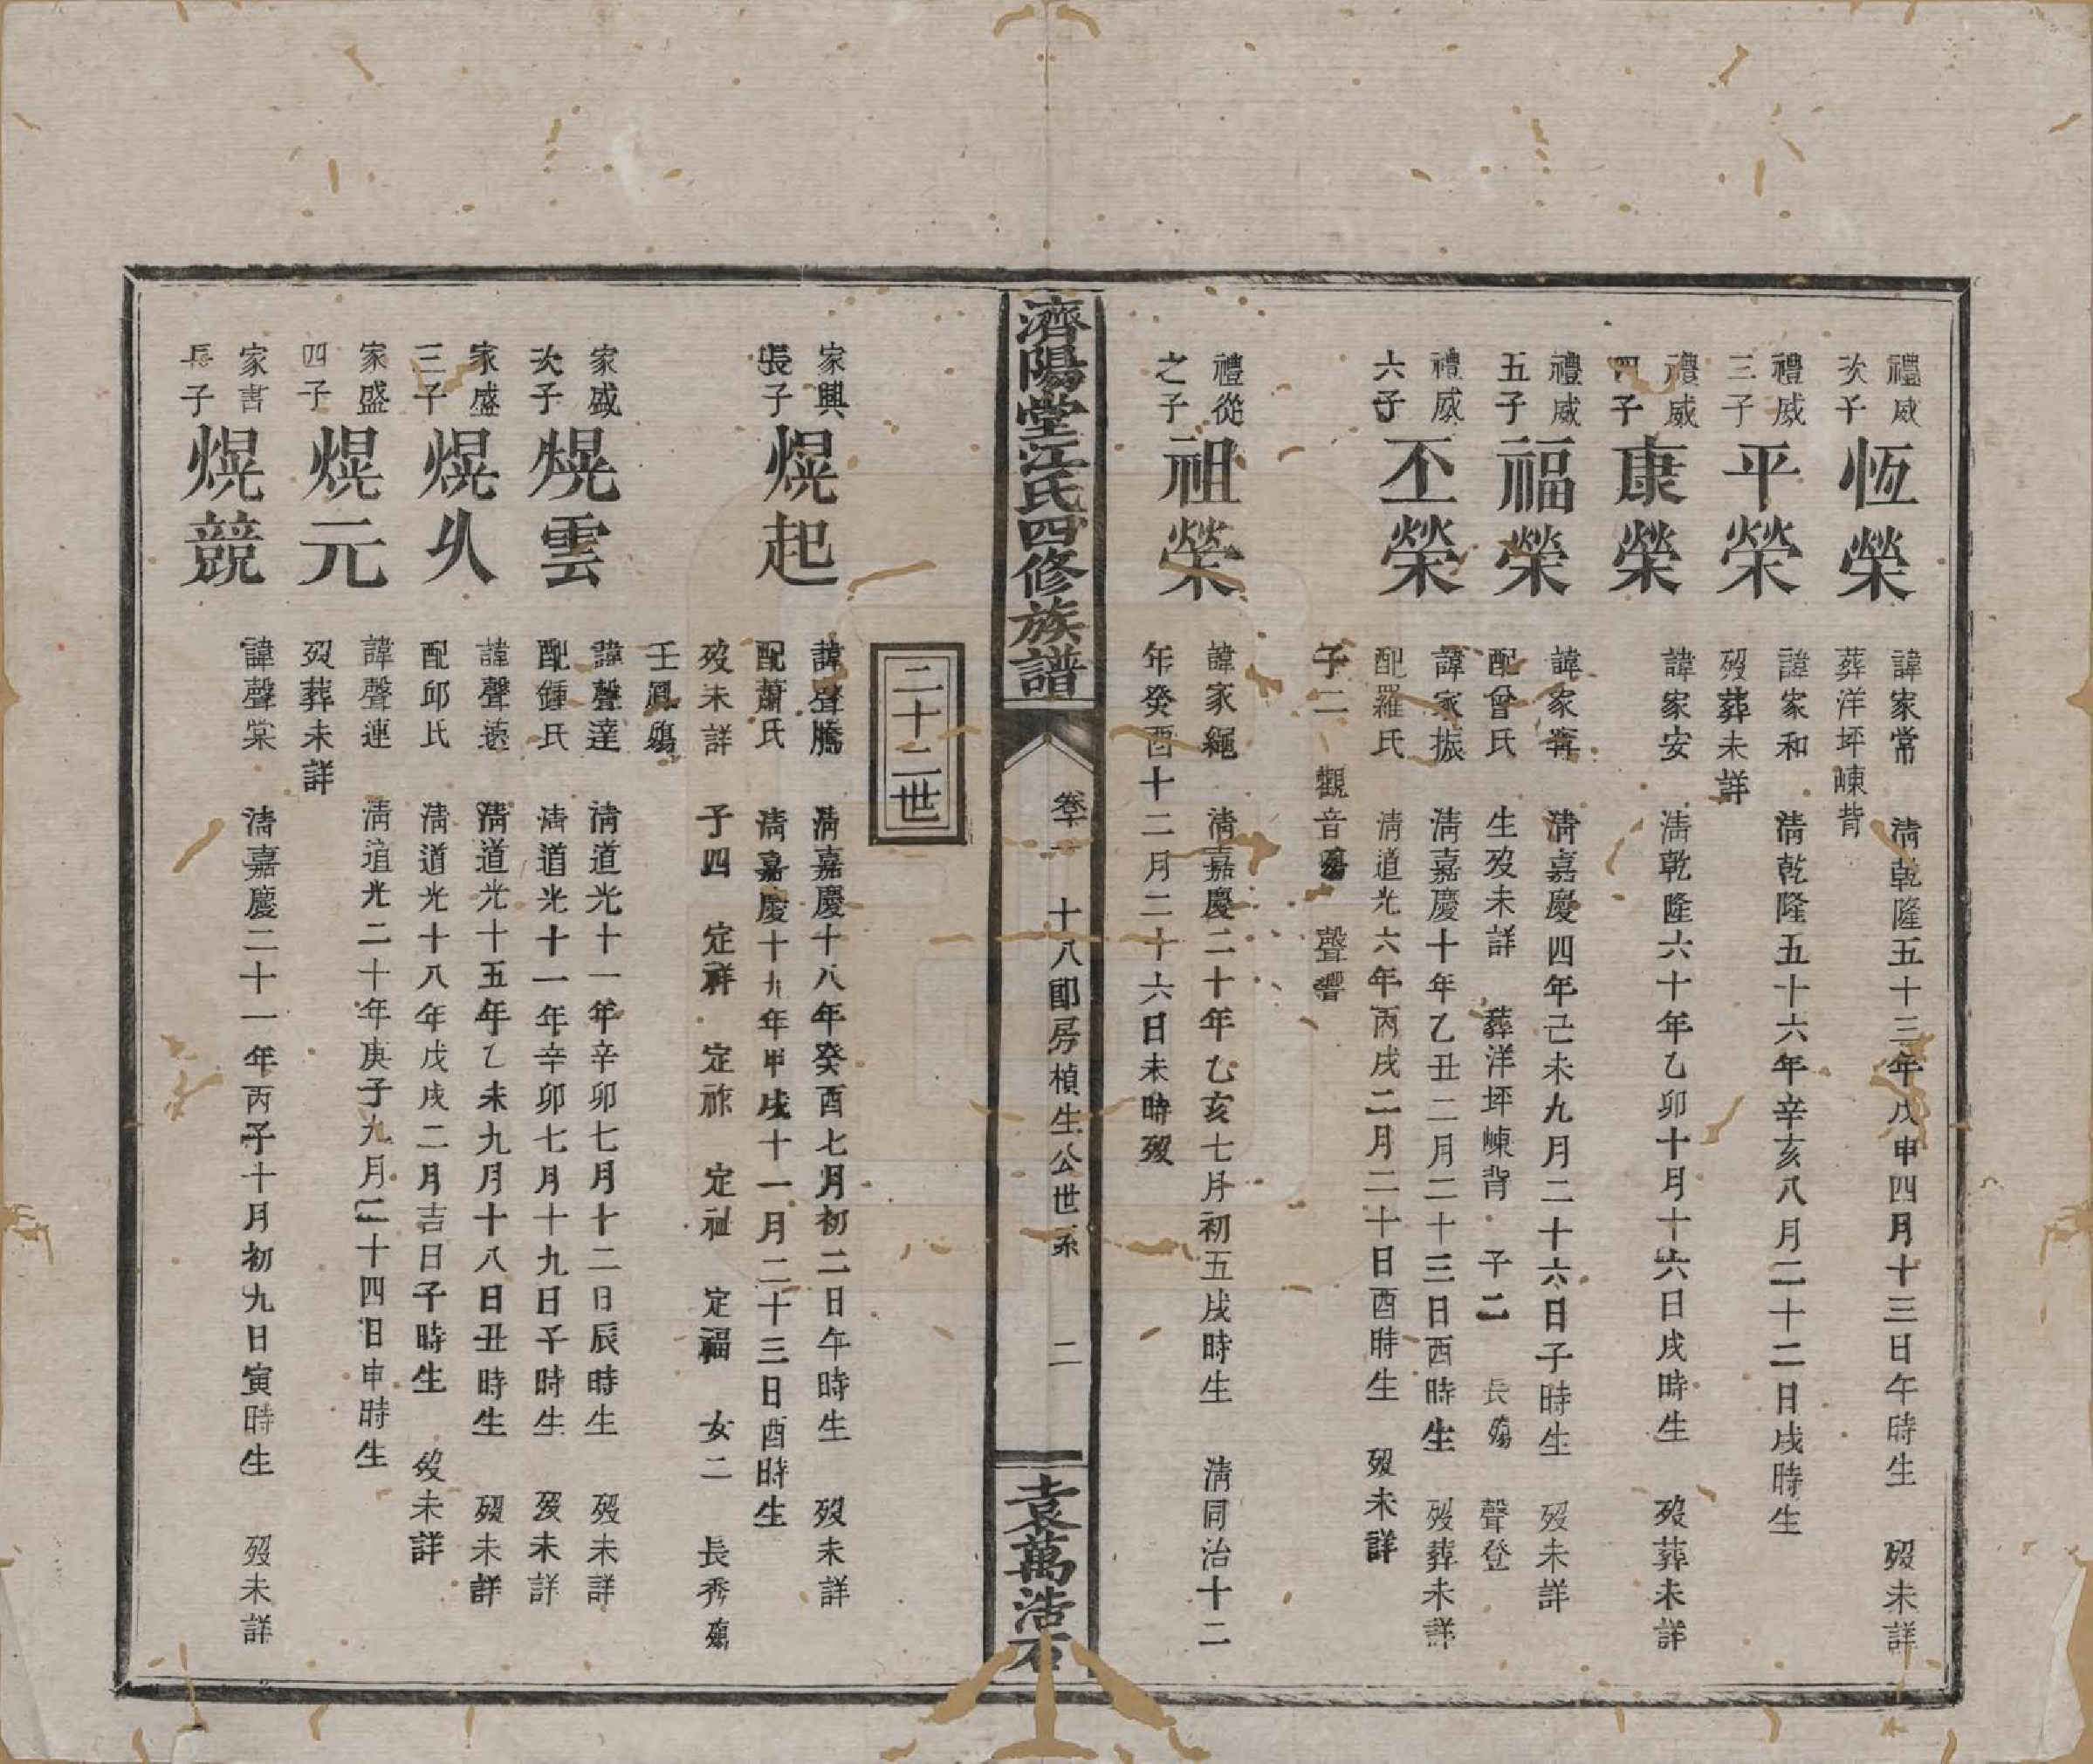 禮威
次子
恆榮
諱家常 淸乾隆五十三年戊申四月十三日午時生 歿未詳
葬洋坪崠背
禮威
三子
平榮
諱家和 淸乾隆五十六年辛亥八月二十二日戌時生
歿葬未詳
禮威
四子
康榮
諱家安 淸乾隆六十年乙卯十月十六日戌時生 歿葬未詳
禮威
五子
福榮
諱家寗 淸嘉慶四年己未九月二十六日子時生 歿未詳
配曾氏 生歿未詳 葬洋坪崠背 子二 長殤 聲登
禮威
六子
丕榮
諱家振 淸嘉慶十年乙丑二月二十三日酉時生 歿葬未詳
配羅氏 淸道光六年丙戌二月二十日酉時生 歿未詳
子二 觀音殤 聲響
禮從
之子
祖榮
諱家繩 淸嘉慶二十年乙亥七月初五戌時生 淸同治十二
年癸酉十二月二十六日未時歿
濟陽堂江氏四修族譜
卷十一 十八郎房楨生公世系 二
袁萬浩石
二十二世
家興
長子
熀起
諱聲騰 淸嘉慶十八年癸酉七月初二日午時生 歿未詳
配蕭氏 淸嘉慶十九年甲戌十一月二十三日酉時生
歿未詳 子四 定祥 定祚 定祉 定福 女二 長秀殤
壬鳳殤
家盛
次子
熀雲
諱聲達 淸道光十一年辛卯七月十二日辰時生 歿未詳
配鍾氏 淸道光十一年辛卯七月十九日子時生 歿未詳
家盛
三子
熀久
諱聲遠 淸道光十五年乙未九月十八日丑時生 歿未詳
配邱氏 淸道光十八年戊戌二月吉日子時生 歿未詳
家盛
四子
熀元
諱聲連 淸道光二十年庚子九月二十四日申時生
歿葬未詳
家書
長子
熀競
諱聲棠 淸嘉慶二十一年丙子十月初九日寅時生 歿未詳